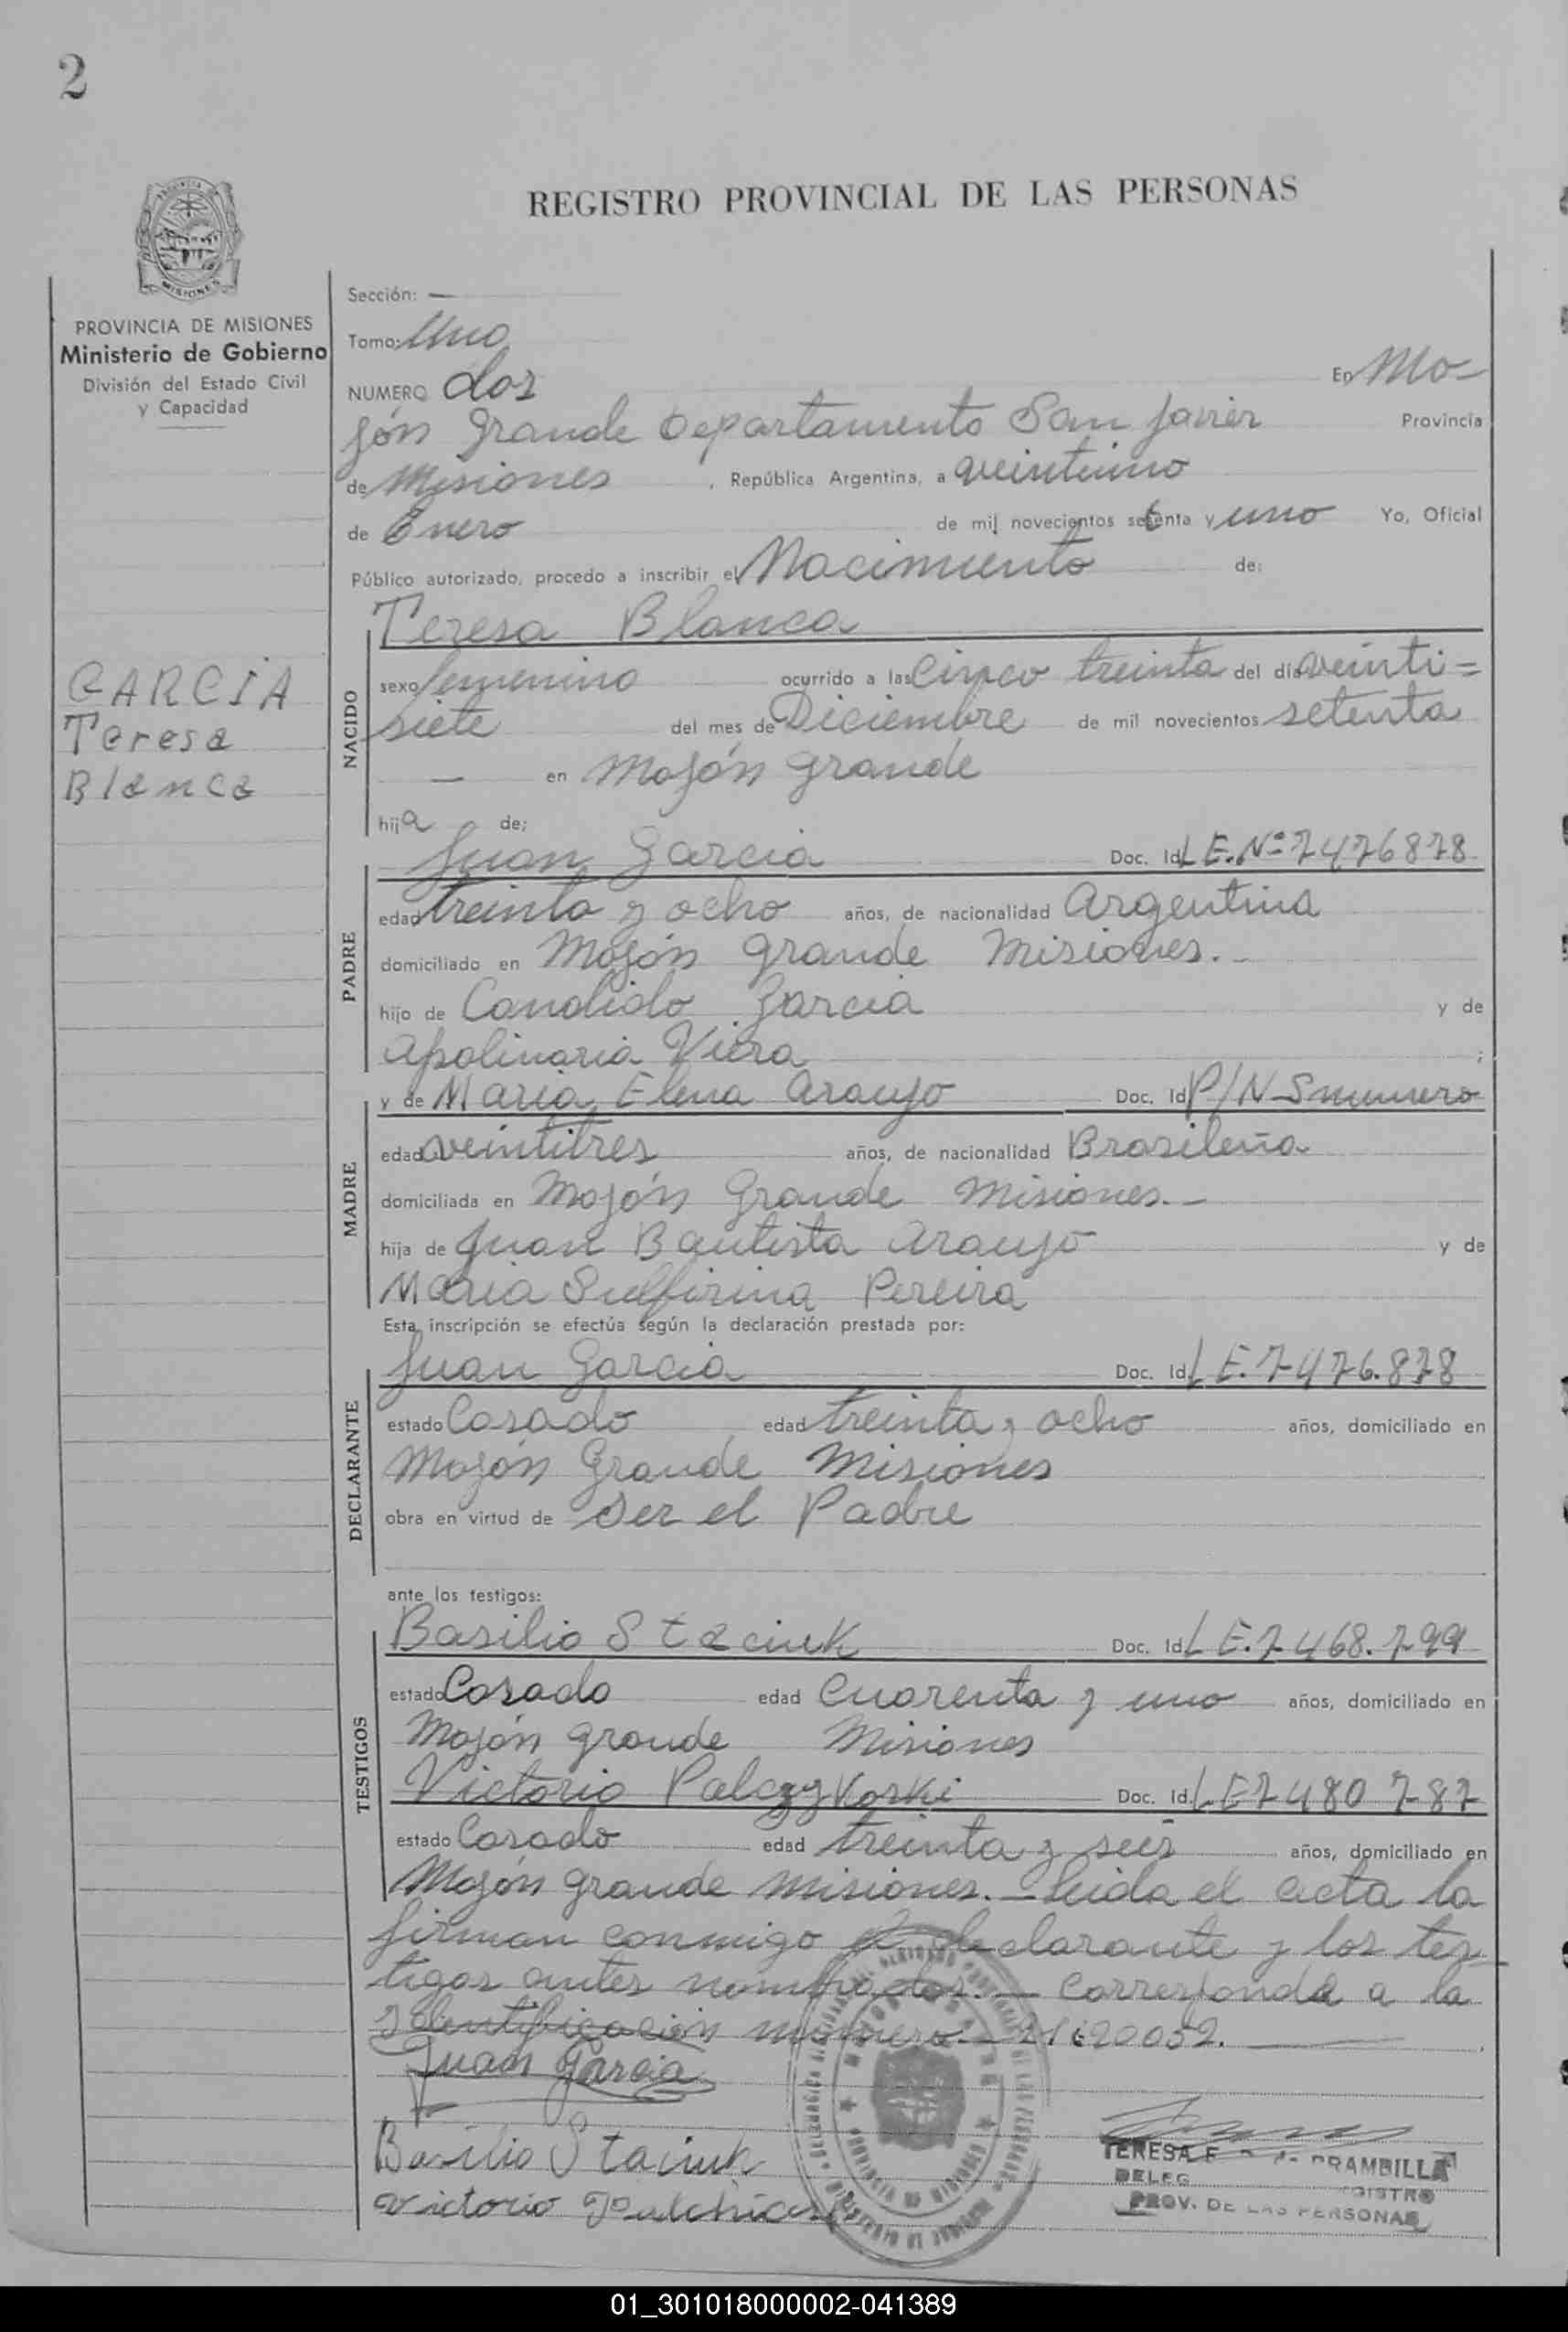 2
REGISTRO PROVINCIAL DE LAS PERSONAS
MISIONES
PROVINCIA DE MISIONES
Ministerio de Gobierno
División del Estado Civil
y Capacidad
GARCIA
Teresa
Blanca
Sección: —
Tomo: Uno
NUMERO dos En Mo-
jón Grande Departamento San Javier Provincia
de Misiones , República Argentina, a veintiuno
de Enero de mil novecientos setenta y uno Yo, Oficial
Público autorizado, procedo a inscribir el Nacimiento de:
Teresa Blanca
NACIDO
sexo femenino ocurrido a las Cinco treinta del día veinti=
siete del mes de Diciembre de mil novecientos setenta
— en Mojón Grande
hija de:
Juan Garcia Doc. Id. L E. Nº 7476878
PADRE
edad treinta y ocho años, de nacionalidad Argentina
domiciliado en Mojón Grande Misiones.-
hijo de Candido Garcia y de
Apolinaria Viera ;
y de Maria Elena Araujo Doc. Id. P/N Snumero
MADRE
edad veintitres años, de nacionalidad Brasileña
domiciliada en Mojón Grande Misiones.-
hija de Juan Bautista Araujo y de
Maria Sulfirina Pereira
Esta inscripción se efectúa según la declaración prestada por:
Juan Garcia Doc. Id. L E. 7476.878
DECLARANTE
estado Casado edad treinta y ocho años, domiciliado en
Mojón Grande Misiones
obra en virtud de ser el Padre
ante los testigos:
Basilio Staciuk Doc. Id. L E. 7468.799
TESTIGOS
estado Casado edad Cuarenta y uno años, domiciliado en
Mojón Grande Misiones
Victorio Palczykoski Doc. Id. L E 7480787
estado Casado edad treinta y seis años, domiciliado en
Mojón Grande Misiones.- Leida el acta la
firman conmigo el declarante y los tes-
tigos antes nombrados.- Corresponde a la
Identificación número 21620052.
Juan Garcia
Basilio Staciuk
Victorio
TERESA F BRAMBILLA
DELEG
PROV. DE LAS PERSONAS
01_301018000002-041389